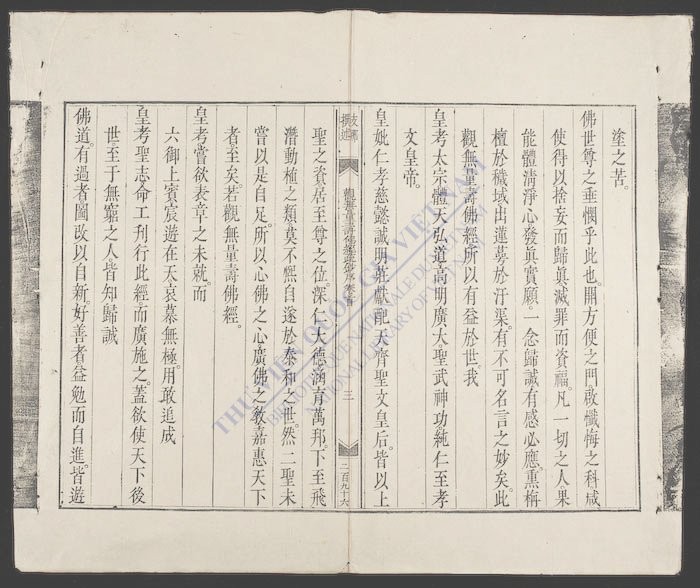 塗之苦。
佛世尊之垂憫乎此也。開方便之門啟懺悔之科咸
使得以捨妄而歸眞滅罪而資福。凡一切之人。果
能體清淨心發眞實願。一念歸誠有感必應。熏栴
檀於穢域出蓮蕚於汙渠。有不可名言之妙矣。此
觀無量壽佛經所以有益於世。我
皇考太宗體天弘道高明廣大。聖武神功。純仁至孝
文皇帝。
皇妣仁孝慈懿誠明莊獻配天齊聖文皇后。皆以上
支那
撰述
觀無量壽佛經
三
二百九十六
聖之資居至尊之位。深仁大德涵育萬邦。下至飛
潛動植之類莫不熙自遂於泰和之世。然二聖未
嘗以是自足。所以心佛之心廣佛之敎嘉惠天下
者至矣。若觀無量壽佛經。
皇考嘗欲表章之未就。而
六御上賓宸遊在天哀慕無極。用敢追成
皇考聖志命工刋行此經而廣施之。蓋欲使天下後
世至于無窮之人皆知歸誠
佛道。有過者圖改以自新。好善者益勉而自進。皆遊
THƯ VIỆN QUỐC GIA VIỆT NAM
BIBLIOTHÈQUE NATIONALE DU VIETNAM
NATIONAL LIBRARY OF VIETNAM